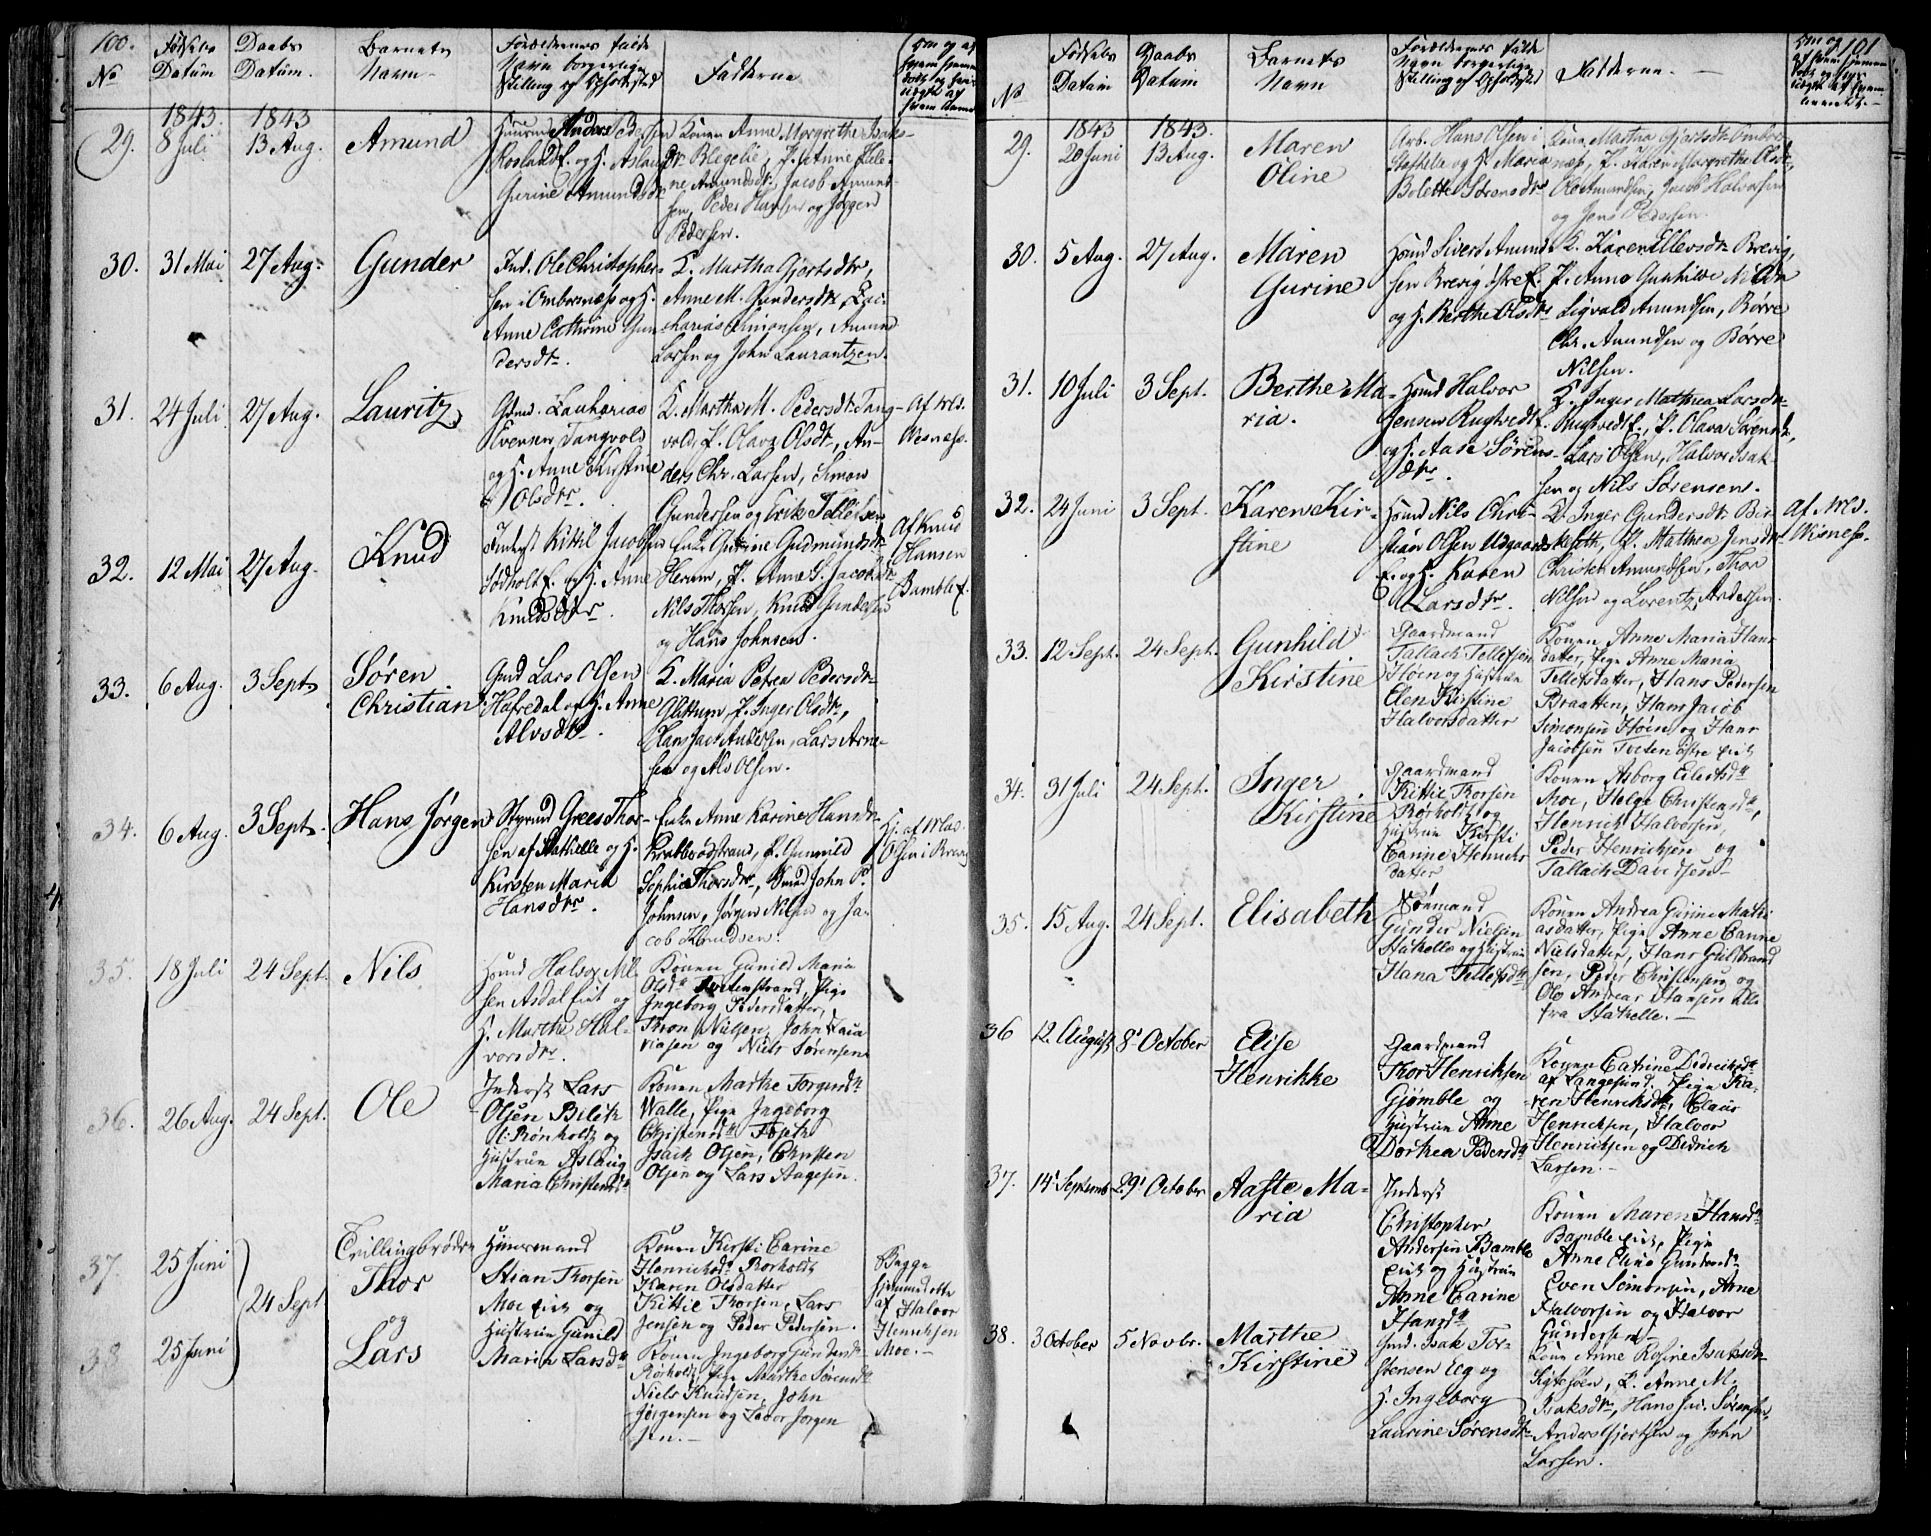 100.
No
Fødsels Datum
Daabs Datum.
Barnets Navn
Forældrenes fulde Navn borgerlige Stilling og Opholdsted
Fadderne
1843.
1843
29.
8 Juli
13 Aug.
Amund
Anders Pedersen
Roslandf. og H. Aslaug
Gurine Amundsdr
Konen Anne Margrethe Isaks-
dr. Blegelie, P. Anne Hele-
ne Amundsdr. Jacob Amund-
sen, Peder Hansen og Jørgen
Pedersen.
30.
31 Mai
27 Aug.
Gunder
Ind. Ole Christopher-
sen i Ombrsnæs og H.
Anne Cathrine Gun-
dersdr.
K. Martha Gjertsdtr,
Anne M. Gundersdtr, Zac-
harias Simonsen, Amund
Larsen og John Laurantzen.
31.
24 Juli
27 Aug.
Lauritz
Gmd. Zacharias
Evensen Tangvald
og H. Anne Kirstine
Olsdtr.
K. Martha M. Pedersdtr Tang-
vald, P. Olava Olsdtr, An-
ders Chr. Larsen, Simon
Gundersen og Erik Tellefsen
Af Mad.
Wisness.
32.
12 Mai
27 Aug.
Knud
Inderst Kittil Jacobsen
Rodholt f. og H. Anne
Knudsdtr.
Enke Gurine Gudmundsdtr
Herum, P. Anne S. Jacobsdtr
Nils Thorsen, Knud Gundersen
og Hans Johnsen.
Af Knud
Hansen
Bamble f.
33.
6 Aug.
3 Sept.
Søren
Christian
Gmd Lars Olsen
Hafredal og H. Anne
Alvsdtr.
K. Maria Petrea Pedersdtr
P. Inger Olsdtr,
Hans Jac. Andersen, Lars Arne-
sen og Als Olsen.
34.
6 Aug.
3 Sept.
Hans Jørgen
Styrmd Grees Thor-
sen af Stathelle og H.
Kirsten Maria
Hansdtr.
Enke Anne Karine Hansdtr
Krabberødstrand, P. Gunnild
Sophie Thorsdtr, Gmd John P.
Johnsen, Jørgen Nilsen og Ja-
cob Knudsen.
Hj. af Mad.
Olsen i Brevig
35.
18 Juli
24 Sept.
Nils
Hmd Halvor Nil-
sen Asdal Eiet og
H. Marthe Hal-
vorsdtr.
Konen Gunild Maria
Olsdr
Ingeborg Pedersdatter,
Thron Nielsen, John
og Niels Sørensen
36.
26 Aug.
24 Sept.
Ole
Inderst Lars
Olsen
Rønholt og
Hustrue Aslaug
Maria Christensdr
Konen Marthe Torgersdr
Walle, Pige Ingeborg
Christensdr
Isack Olsen, Christen
Olsen og Lars Aagesen.
37.
25 Juni
38.
25 Juni
24 Sept
Tvillingbrødre
Thor
og
Lars
Huusmand
Stian Thorsen
Moe Eiet og
Hustrue Gunild
Maria Larsdr
Konen Kirsti Carine
Henrichsdr Rørholt
Karen Olsdatter
Kittil Thorsen, Lars
Jensen og Peder Pedersen.
Konen Ingeborg Gundersdr
Rørholt, Pige Marthe Sørensdr
Niels Knudsen, John
Jørgensen og Jørgen-
sen.
Begge
hjemmedøbte
af Halvor
Henriksen
Moe.
101
No
Fødsels Datum
Daabs Datum
Barnets Navn
Forældrenes fulde Navn borgerlige Stilling og Opholdsted
Fadderne.
1843
1843.
29.
20 Juni
13 Aug.
Maren
Oline
Arb. Hans Olsen i
Stathelle og H. Maria
Bolette Sørensdtr
Kone Martha Gjertsdtr Ombors-
næs, P. Karen Margrethe Olsdtr,
Ole Amundsen, Jacob Halvorsen
og Jens Pedersen.
30.
5 Aug.
27 Aug.
Maren
Gurine
Hsmd Sivert Amund-
sen Brevig Østre E.
og H. Berthe Olsdtr
K. Karen Ellevsdtr Brevig,
P. Anne Gunhilde
Sigvald Amundsen, Børre
Chr. Amundsen og Børre
Nilsen.
31.
10 Juli
3 Sept.
Berthe Ma-
ria.
Hsmd Halvor
Jensen Rugtvedt E.
og H. Aase Sørens-
dtr.
K. Inger Mathea Larsdtr
Rugtvedt E., P. Olava Sørensdtr,
Lars Olsen, Halvor Isak-
sen og Nils Sørensen.
32.
24 Juni
3 Sept.
Karen Kir-
stine
Hsmd Nils Chri-
stian Olsen Udgaard
E. og H. Karen
Larsdtr.
K. Inger Gundersdtr Bir-
keseth, P. Mathea Jensdtr
Christen Amundsen, Thor
Nilsen og Lorentz Andersen.
Af Md.
Wisness.
33.
12 Sept.
24 Sept.
Gunhild
Kirstine
Gaardmand
Tallach Tellefsen
Høen og Hustrue
Elen Kirstine
Halvorsdatter
Konen Anne Maria Hans-
datter, Pige Anne Maria
Tellefsdatter, Hans Pedersen
Braatten, Hans Jacob
Simonsen Høen og Hans
Jacobsen Tveten Østre Eiet
34.
31 Juli
24 Sept.
Inger
Kirstine
Gaardmand
Kittil Thorsen
Rørholt og
Hustrue Kirsti
Carine Henrichs-
datter
Konen Asborg Eilertsdr
Moe, Helge Christensdr,
Henrich Halvorsen,
Peder Henrichsen og
Tallach Davidsen
35.
15 Aug.
24 Sept.
Elisabeth
Sømand
Gunder Nielsen
Stathelle og Hustrue
Hana Tellefsdr
Konen Andrea Gurine Mathi-
asdatter, Pige Anne Canne
Nielsdatter, Hans Guldbrand-
sen, Peder Christensen og
Ole Andreas Hansen Alle
fra Stathelle.
36
12. August
8' October
Elise
Henrikke
Gaardmand
Thor Henriksen
Gjømble og
Hustrue Anne
Dorthea Pedersdr
Konen Catrine Didrichsdr
af Langesund. Pige Ka-
ren Henriksdr, Claus
Henrichsen, Halvor
Henrichsen og Didrich
Larsen.
37.
14' Septemb
29' October
Aaste Ma-
ria
Inderst
Christopher
Andersen Bamble
Eiet og Hustrue
Anne Carine
Hansdr
Konen Maren Hansdr
Bamble Eiet, Pige
Anne Elina Gundersdr
Even Simonsen, Arne
Halvorsen og Halvor
Gundersen
38.
3 October
5 Novbr.
Marthe
Kirstine
Gmd. Isak Tor-
stensen Eeg og
H. Ingeborg
Laurine Sørensdtr
Kone Anne Rosine Isaksdtr
P. Anne M.
Isaksdtr, Hans Jac. Sørensen,
Anders Gjertsen og John
Larsen.